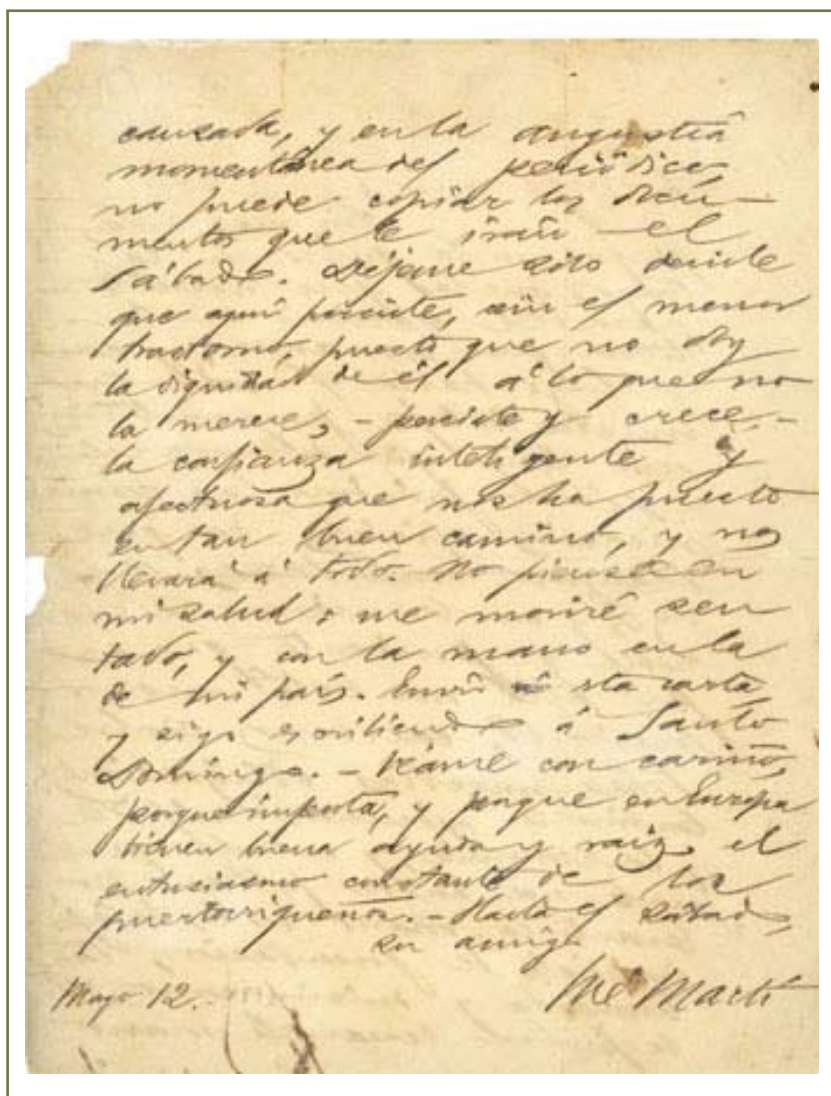 cansada, y en la angustia
momentánea del periódico,
no puede copiar los docu-
mentos que le irán el
Sábado. Déjeme sólo decirle
que aquí persiste, sin el menor
trastorno, puesto que no doy
la dignidad de él á lo que no
la merece, - persiste y crece, -
la confianza inteligente y
afectuosa que nos ha puesto
en tan buen camino, y nos
llevará á todo. No piense en
mi salud: me moriré sen
tado, y con la mano en la
de mi país. Envío sta carta,
y sigo escribiendo á Santo
Domingo. - Léame con cariño,
porque importa, y porque en Europa
tienen buena ayuda y raiz, el
entusiasmo constante de los
puertorriqueños. - Hasta el sábado,
su amigo
Mayo 12. - Martí